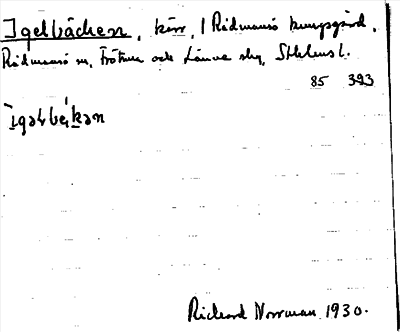 Igelbäcken, kärr, 1 Rådmansö kungsgård,
Rådmansö sn, Frötuna och Länna skg, Sthlms l.
85 393
Richard Norrman 1930.